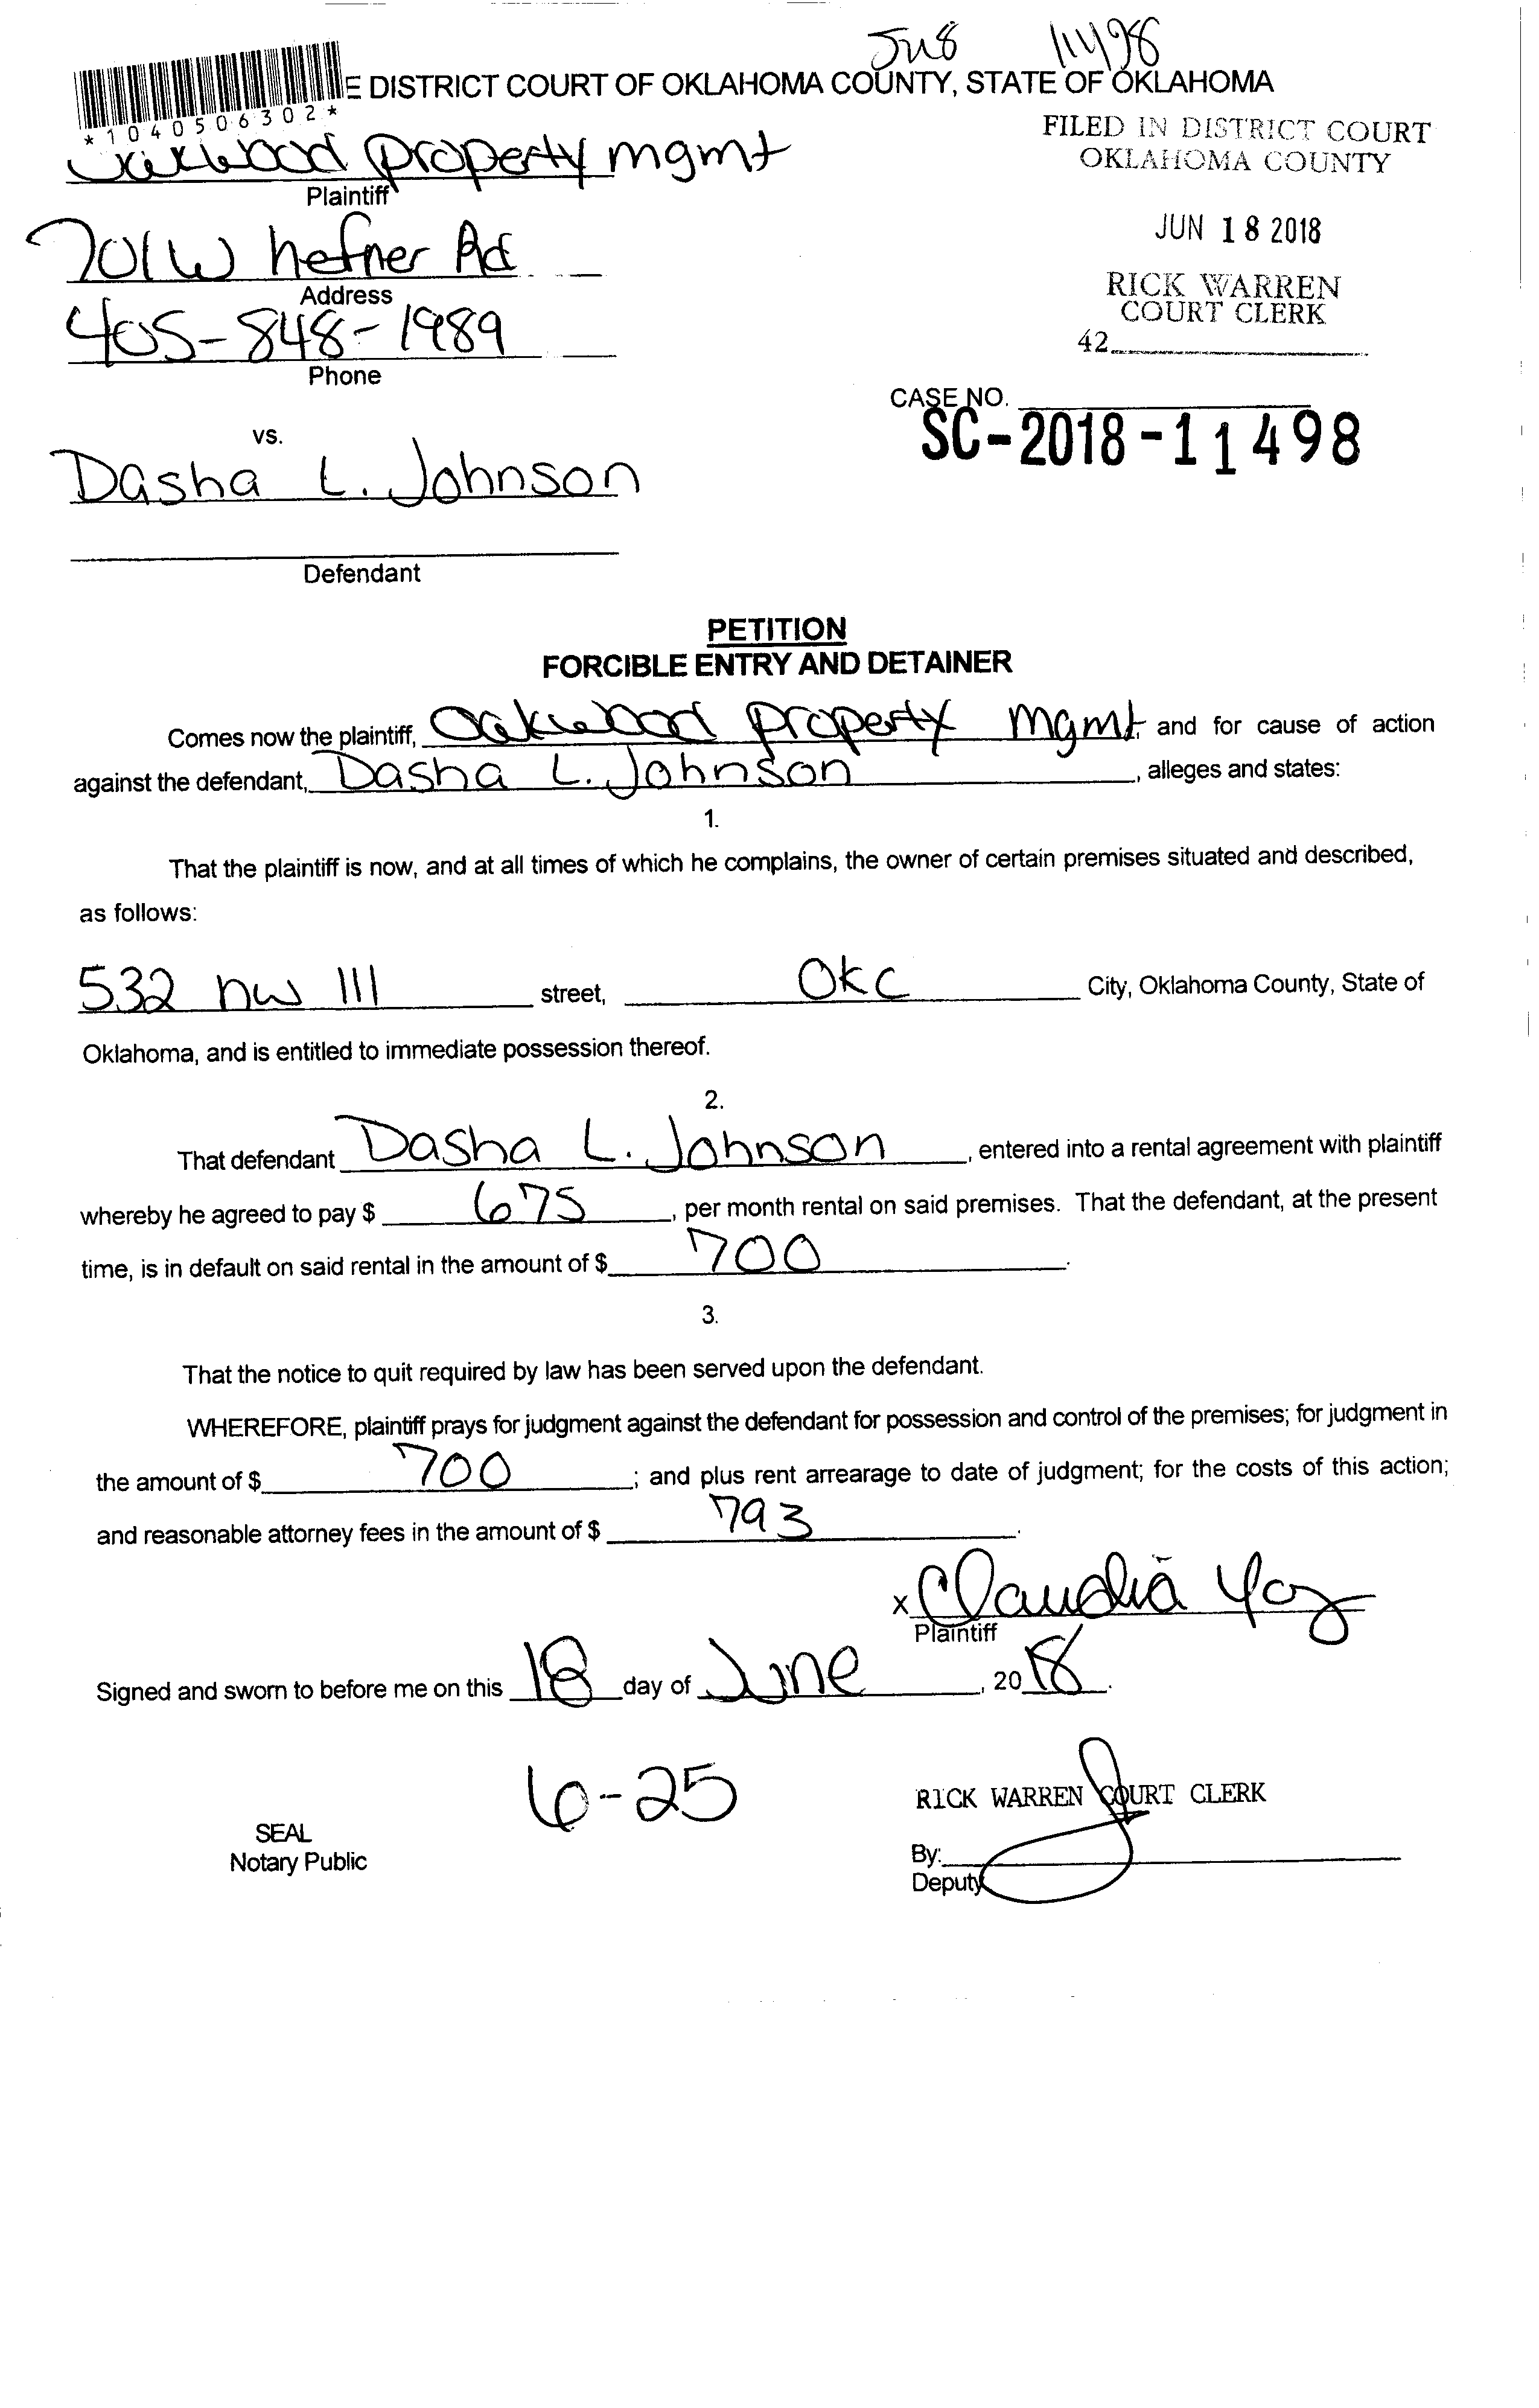 E DISTRICT COURT OF OKLAHOMA COUNTY, STATE OF OKLAHOMA
*1040506302*
FILED IN DISTRICT COURT
OKLAHOMA COUNTY
Oakwood property mgmt
Plaintiff
JUN 18 2018
701 W hefner Rd
Address
RICK WARREN
COURT CLERK
405-848-1989
42
Phone
CASE NO.
SC-2018-11498
vs.
Dasha L. Johnson
Defendant
PETITION
FORCIBLE ENTRY AND DETAINER
Comes now the plaintiff, Oakwood property mgmt, and for cause of action
against the defendant, Dasha L. Johnson, alleges and states:
1.
That the plaintiff is now, and at all times of which he complains, the owner of certain premises situated and described,
as follows:
532 nw 111 street, OKC City, Oklahoma County, State of
Oklahoma, and is entitled to immediate possession thereof.
2.
That defendant Dasha L. Johnson, entered into a rental agreement with plaintiff
whereby he agreed to pay $ 675, per month rental on said premises. That the defendant, at the present
time, is in default on said rental in the amount of $ 700.
3.
That the notice to quit required by law has been served upon the defendant.
WHEREFORE, plaintiff prays for judgment against the defendant for possession and control of the premises; for judgment in
the amount of $ 700; and plus rent arrearage to date of judgment; for the costs of this action;
and reasonable attorney fees in the amount of $ 793.
x Claudia
Plaintiff
Signed and sworn to before me on this 18 day of June, 2018.
6-25
RICK WARREN COURT CLERK
SEAL
Notary Public
By:
Deputy